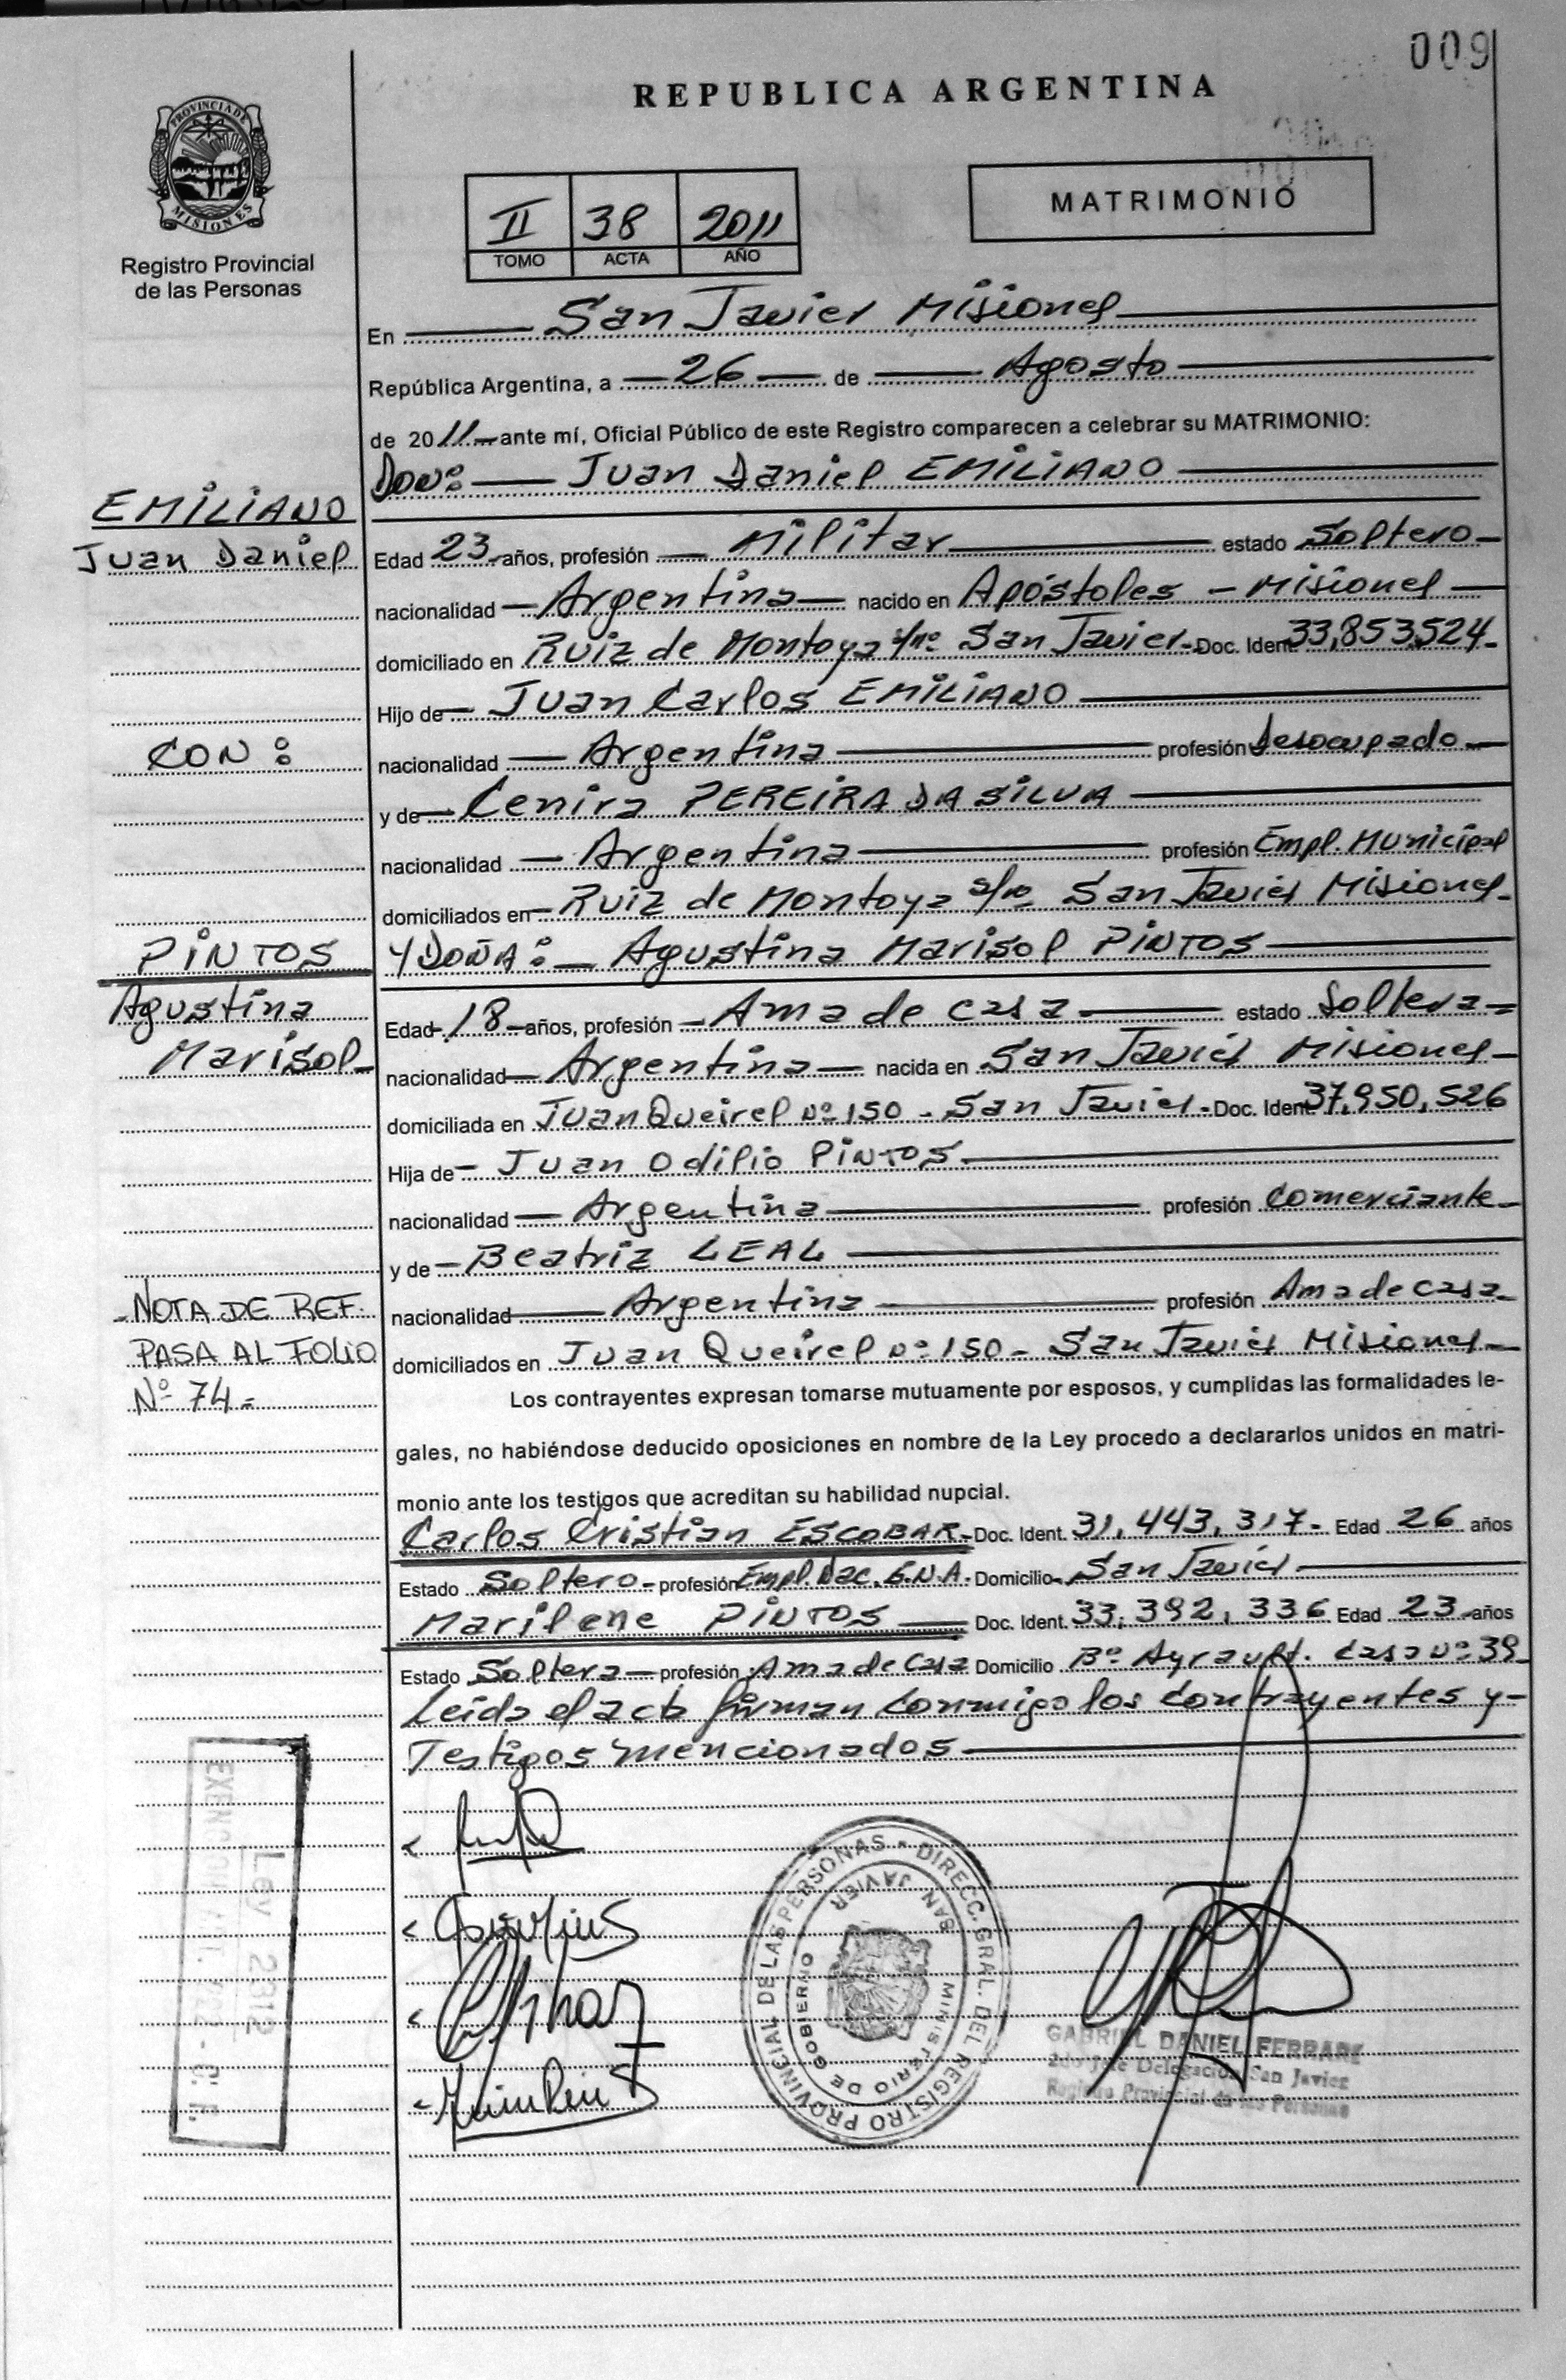 009
REPUBLICA ARGENTINA
PROVINCIA DE
MISIONES
Registro Provincial
de las Personas
II 38 2011
TOMO ACTA AÑO
MATRIMONIO
En San Javier Misiones
República Argentina, a 26 de Agosto
de 2011 ante mí, Oficial Público de este Registro comparecen a celebrar su MATRIMONIO:
DON: Juan Daniel EMILIANO
EMILIANO
Juan Daniel
Edad 23 años, profesión Militar estado Soltero
nacionalidad Argentina nacido en Apóstoles - Misiones
domiciliado en Ruiz de Montoya s/nº San Javier. Doc. Ident 33,853,524.
Hijo de Juan Carlos EMILIANO
CON:
nacionalidad Argentina profesión Desocupado
y de Cenira PEREIRA DA SILVA
nacionalidad Argentina profesión Empl. Municipal
domiciliados en Ruiz de Montoya s/nº San Javier Misiones.
PINTOS
Agustina
Marisol
Y DOÑA: Agustina Marisol PINTOS
Edad 18 años, profesión Ama de casa estado Soltera
nacionalidad Argentina nacida en San Javier Misiones
domiciliada en Juan Queirel nº 150 - San Javier. Doc. Ident 37,950,526
Hija de Juan Odilio PINTOS
nacionalidad Argentina profesión Comerciante
y de Beatriz LEAL
NOTA DE REF.
PASA AL FOLIO
Nº 74.
nacionalidad Argentina profesión Ama de casa
domiciliados en Juan Queirel nº 150 - San Javier Misiones
Los contrayentes expresan tomarse mutuamente por esposos, y cumplidas las formalidades le-
gales, no habiéndose deducido oposiciones en nombre de la Ley procedo a declararlos unidos en matri-
monio ante los testigos que acreditan su habilidad nupcial.
Carlos Cristian ESCOBAR Doc. Ident. 31,443,317. Edad 26 años
Estado Soltero profesión Empl. Nac. G.N.A. Domicilio San Javier
Marilene PINTOS Doc. Ident. 33,392,336 Edad 23 años
Estado Soltera profesión Ama de Casa Domicilio Bº Ayrault. Casa nº 39
Leída el acta firman conmigo los contrayentes y
Testigos mencionados
Ley 2312
DIRECC. GRAL. DEL REGISTRO PROVINCIAL DE LAS PERSONAS
SAN JAVIER
MINISTERIO DE GOBIERNO
GABRIEL DANIEL FERRARI
2do Jefe Delegación San Javier
Registro Provincial de las Personas